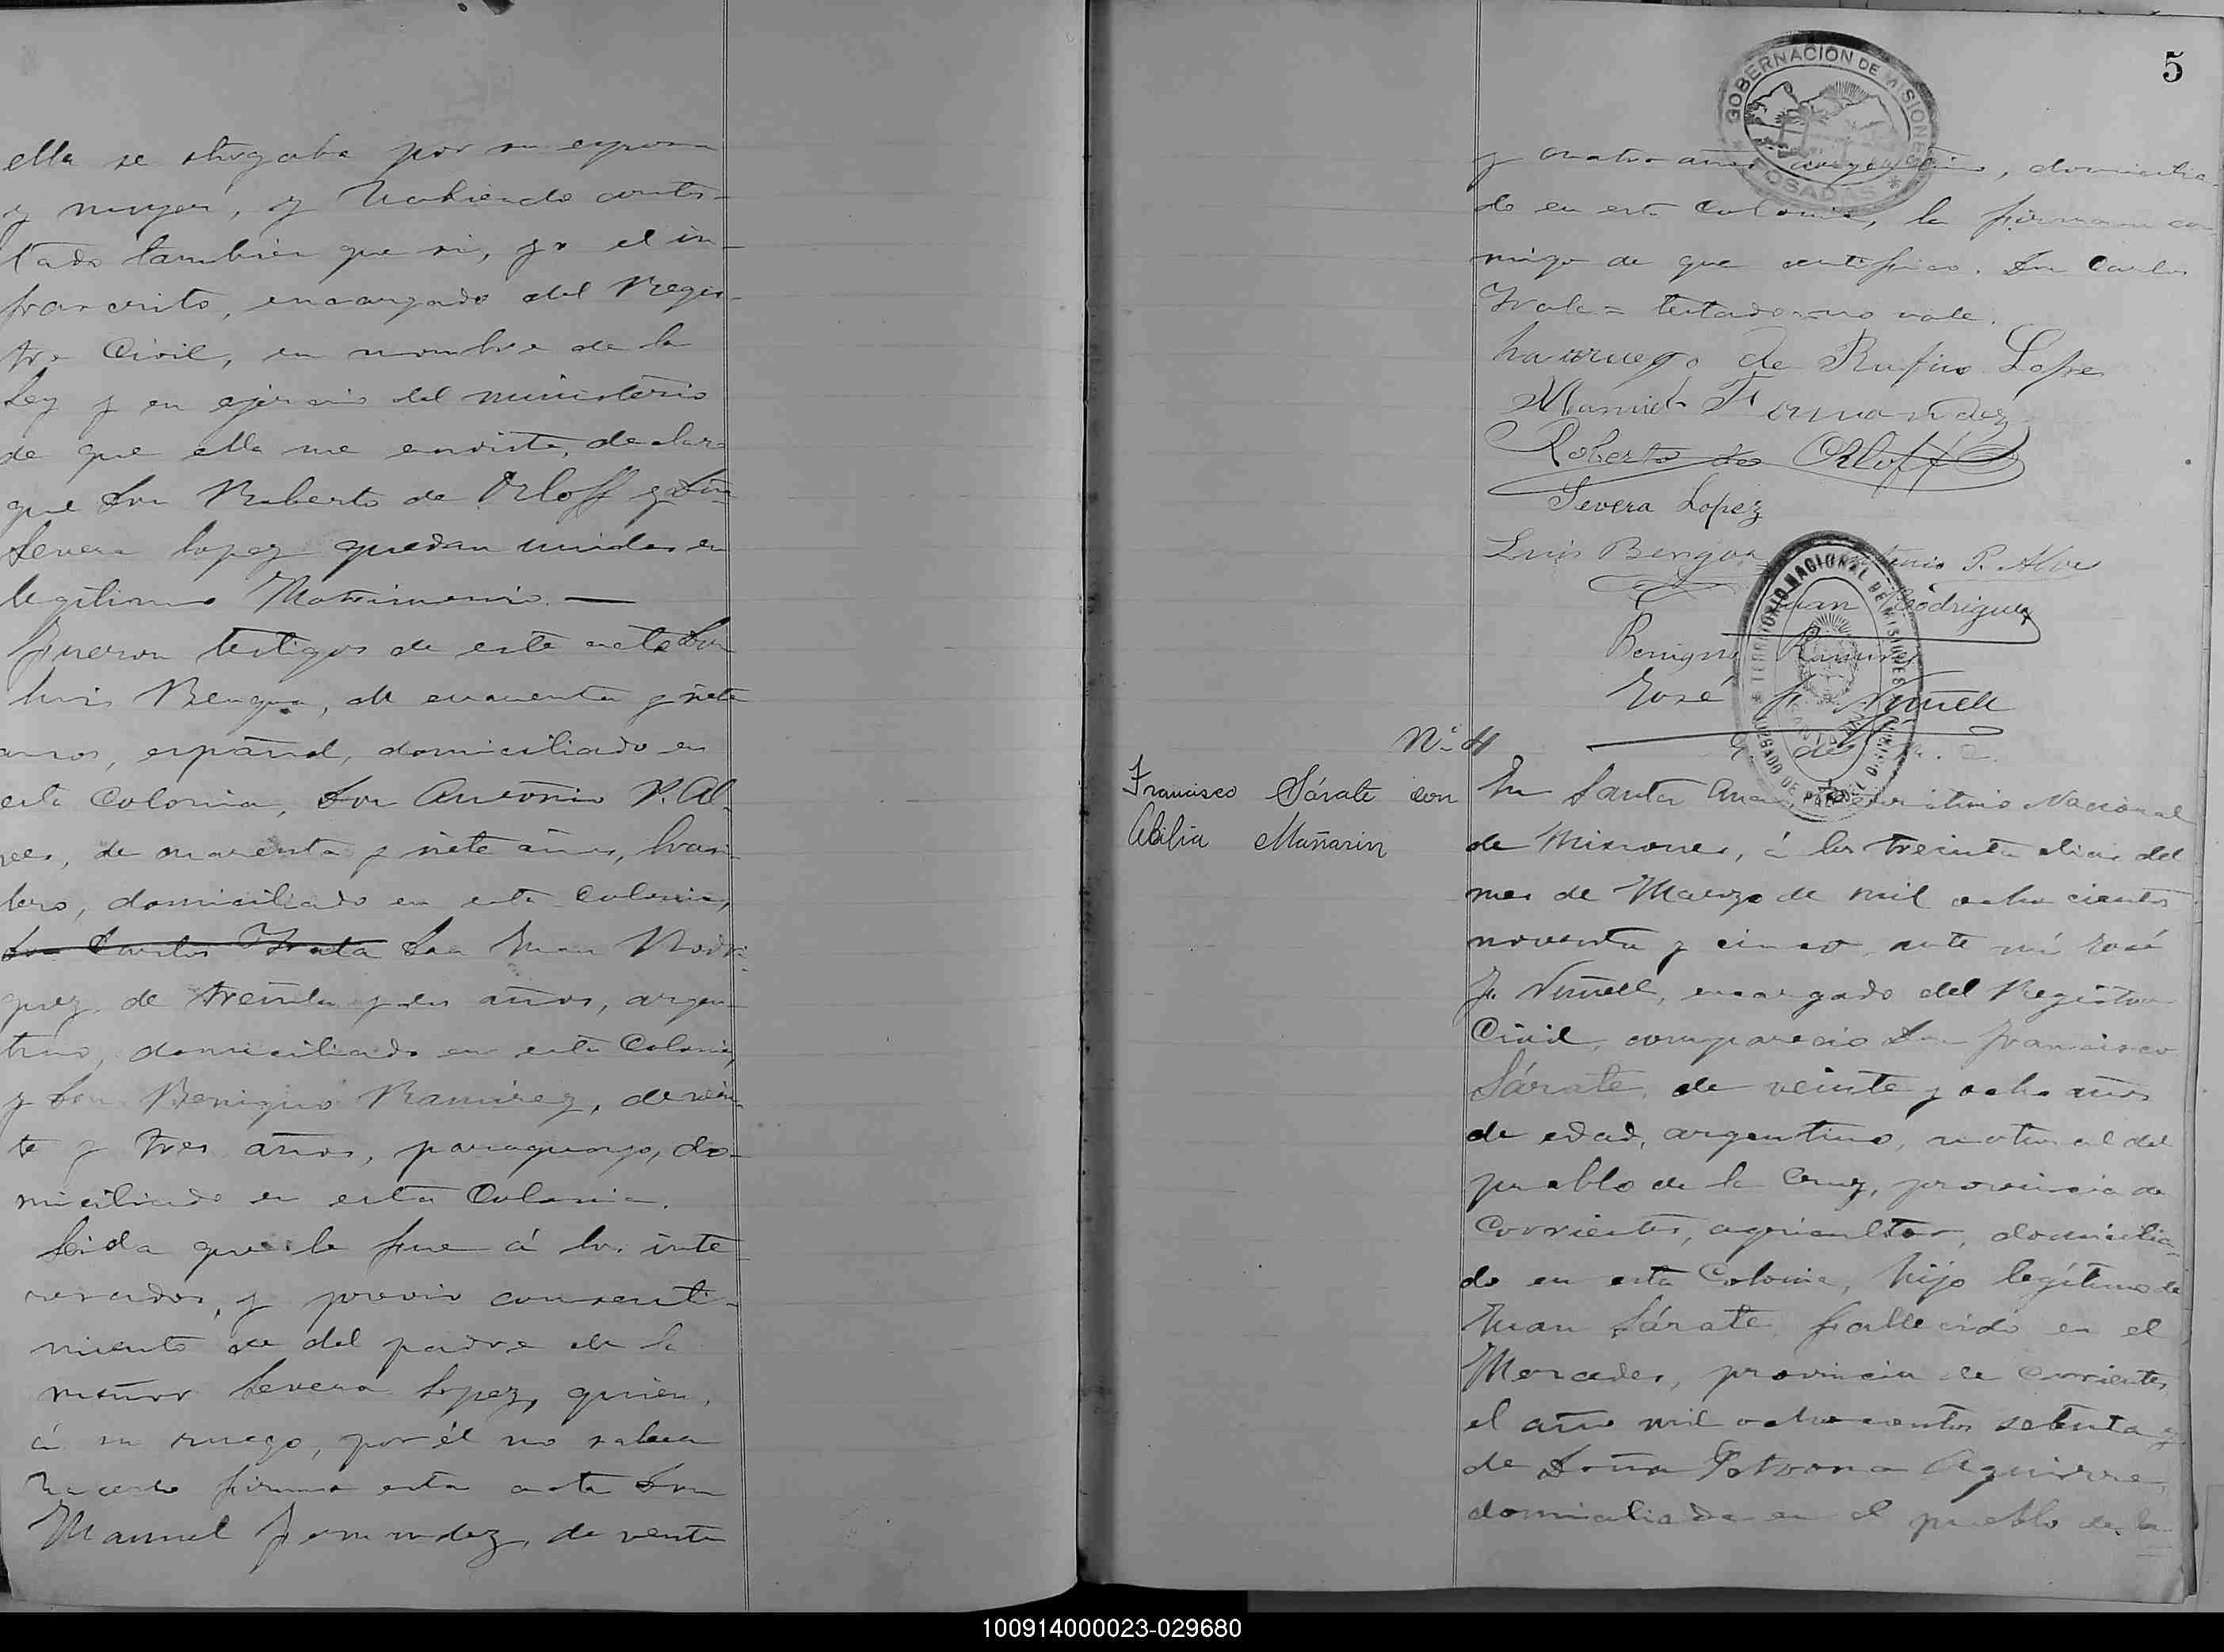 ella se otorgaba por su esposa
y mujer, y habiendo contes-
tado tambien que si, yo el in-
frascrito, encargado del Regis-
tro Civil, en nombre de la
Ley y en ejercicio del ministerio
de que ella me enviste, declaro
que Don Roberto de Orloff y Doña
Severa Lopez quedan unidos en
legítimo Matrimonio. —
Fueron testigos de este acto Don
Luis Bengoa, de cuarenta y siete
años, español, domiciliado en
esta Colonia, Don Antonio P. Al-
ves, de cuarenta y siete años, brasi-
lero, domiciliado en esta Colonia,
Don Carlos Don Juan Rodri-
guez, de treinta y dos años, argen-
tino, domiciliado en esta Colonia,
y Don Benigno Ramirez, de vein-
te y tres años, paraguayo, do-
miciliado en esta Colonia.
Leida que le fue á los inte
resados, y previo consenti-
miento del padre de la
menor Severa Lopez, quien,
á su ruego, por él no saber
hacerlo firma esta acta Don
Manuel Fernandez, de veinte
5
GOBERNACION DE MISIONES
* POSADAS *
y cuatro años, domicilia-
do en esta Colonia, la firman con
migo de que certifico. Don Carlos
testado no vale.
ha ruego de Rufino Lopes
Manuel Fernandez
Roberto de Orloff
Severa Lopez
Luis Bengoa Antonio P. Alves
Juan Rodriguez
Benigno Ramirez
José F. Nuñell
TERRITORIO NACIONAL DE MISIONES
JUZGADO DE PAZ
Nº 4
Francisco Sárate con
Abilia Mañarin
En Santa Ana, Territorio Nacional
de Misiones, á los treinta dias del
mes de Marzo de mil ocho cientos
noventa y cinco, ante mí José
F. Nuñell, encargado del Registro
Civil, compareció Don Francisco
Sárate, de veinte y ocho años
de edad, argentino, natural del
pueblo de la Cruz, provincia de
Corrientes, agricultor, domicilia-
do en esta Colonia, hijo legítimo de
Juan Sárate, fallecido en el
Mercedes, provincia de Corrientes,
el año mil ocho cientos setenta y
de Doña Petrona Aguirre,
domiciliada en el pueblo de la
100914000023-029680